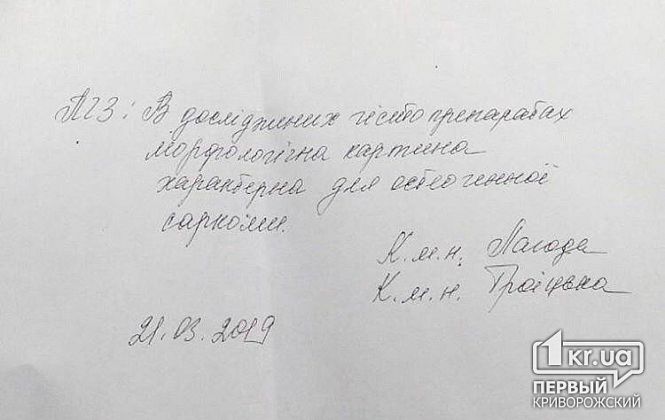 ПГЗ: В досліджених гістопрепаратах
морфологічна картина
характерна для остеогенної
саркоми.
К.м.н. Погода
К.м.н. Троїцька
21.03.2019
1kr.ua
ПЕРВЫЙ
КРИВОРОЖСКИЙ